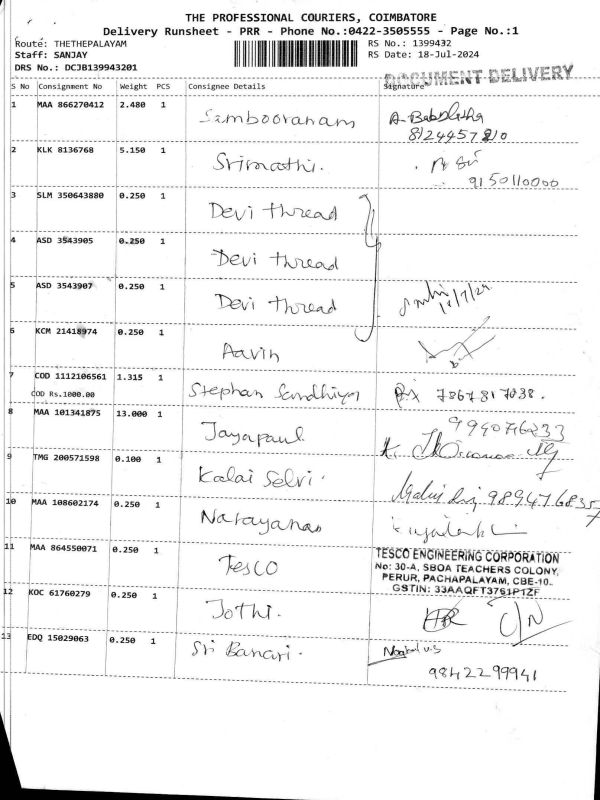 THE PROFESSIONAL COURIERS, COIMBATORE
Delivery Runsheet - PRR - Phone No.:0422-3505555 - Page No.:1
Route: THETHEPALAYAM RS No.: 1399432
Staff: SANJAY RS Date: 18-Jul-2024
DRS No.: DCJB139943201
DOCUMENT DELIVERY
S No Consignment No Weight PCS Consignee Details Signature
1 MAA 866270412 2.480 1 Sambooranam
2 KLK 8136768 5.150 1 Srimathi.
9150110000
3 SLM 350643880 0.250 1 Devi thread
4 ASD 3543905 0.250 1 Devi thread
5 ASD 3543907 0.250 1 Devi thread
6 KCM 21418974 0.250 1 Aavin
7 COD 1112106561 1.315 1 Stephan Sandhiya 7867817038.
COD Rs.1000.00
8 MAA 101341875 13.000 1 Jayapaul
9 TMG 200571598 0.100 1 Kalai Selvi.
10 MAA 108602174 0.250 1 Narayanan
11 MAA 864550071 0.250 1 Tesco
TESCO ENGINEERING CORPORATION
No: 30-A, SBOA TEACHERS COLONY,
PERUR, PACHAPALAYAM, CBE-10.
GSTIN: 33AAQFT3761P1ZF
12 KOC 61760279 0.250 1 Jothi.
13 EDQ 15029063 0.250 1 Sri Banari.
9842299941